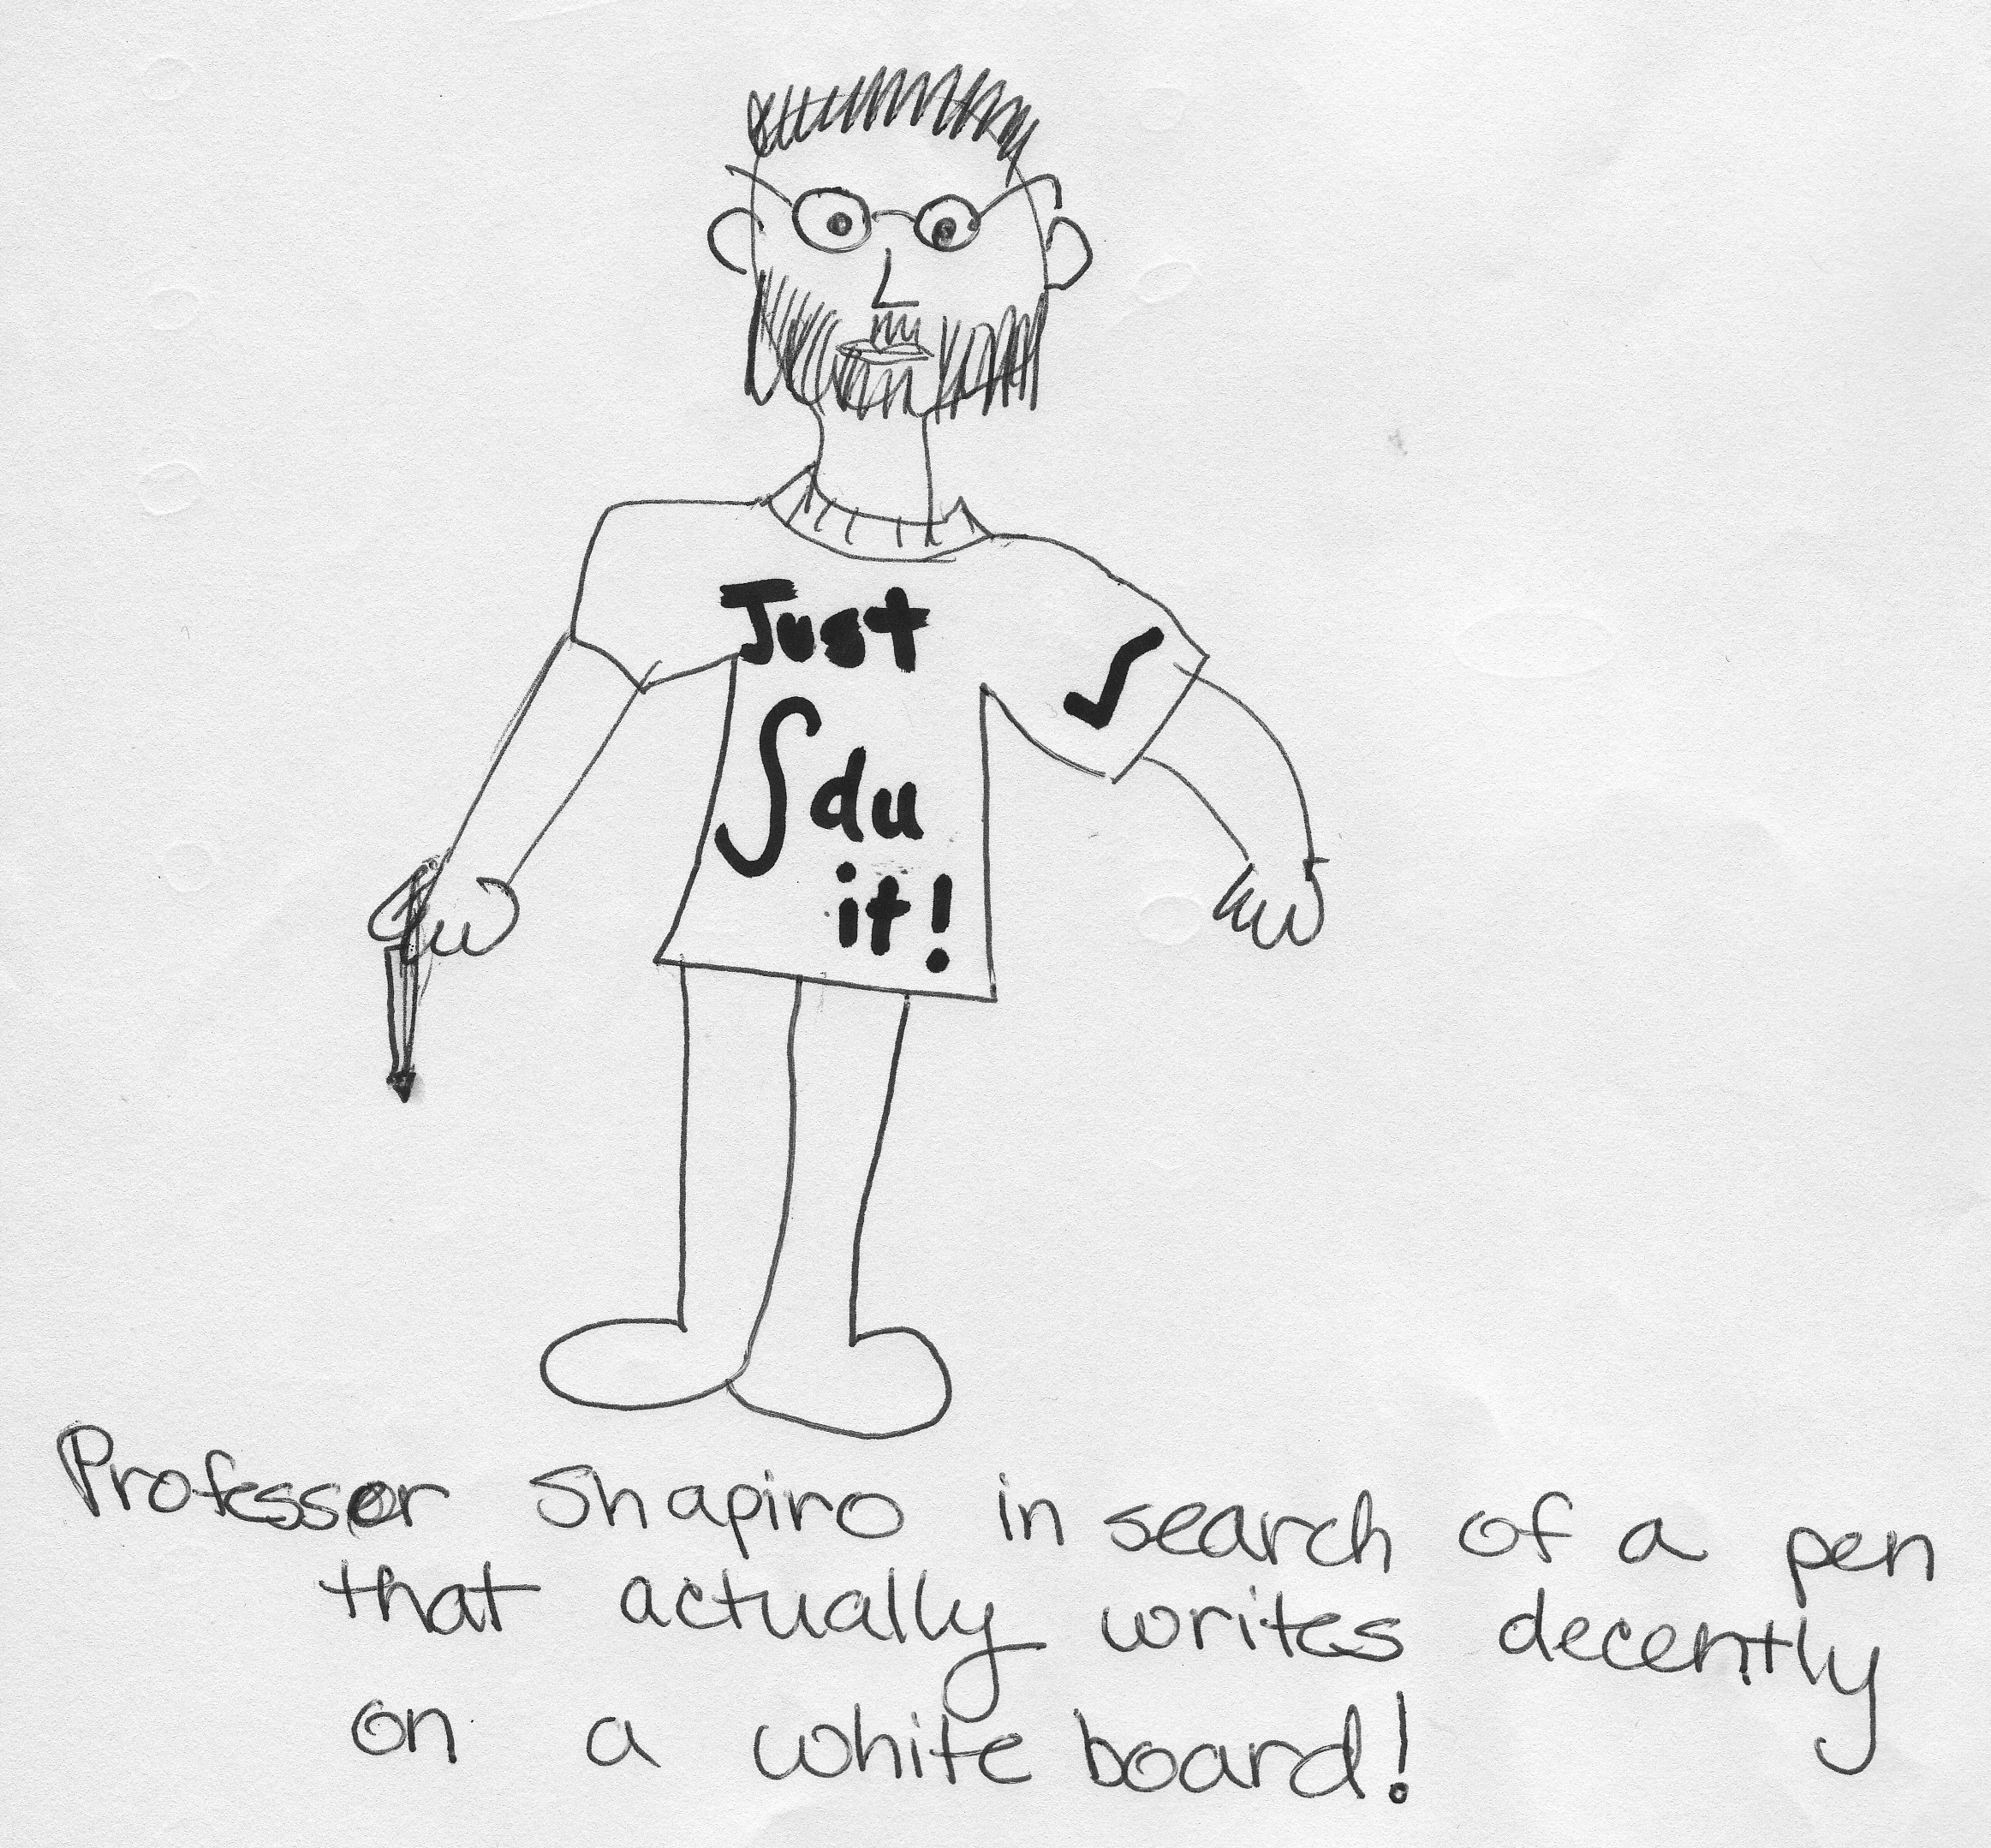 Just
√
∫du
it!
Professor Shapiro in search of a pen
that actually writes decently
on a white board!